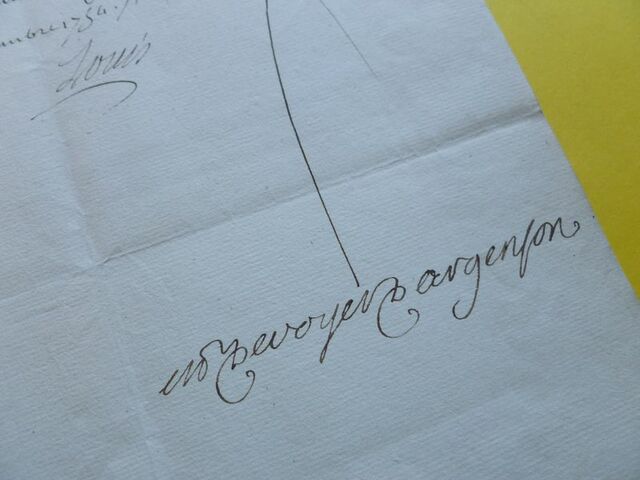 mbre 1754.
Louis
Devoyer Dargenson